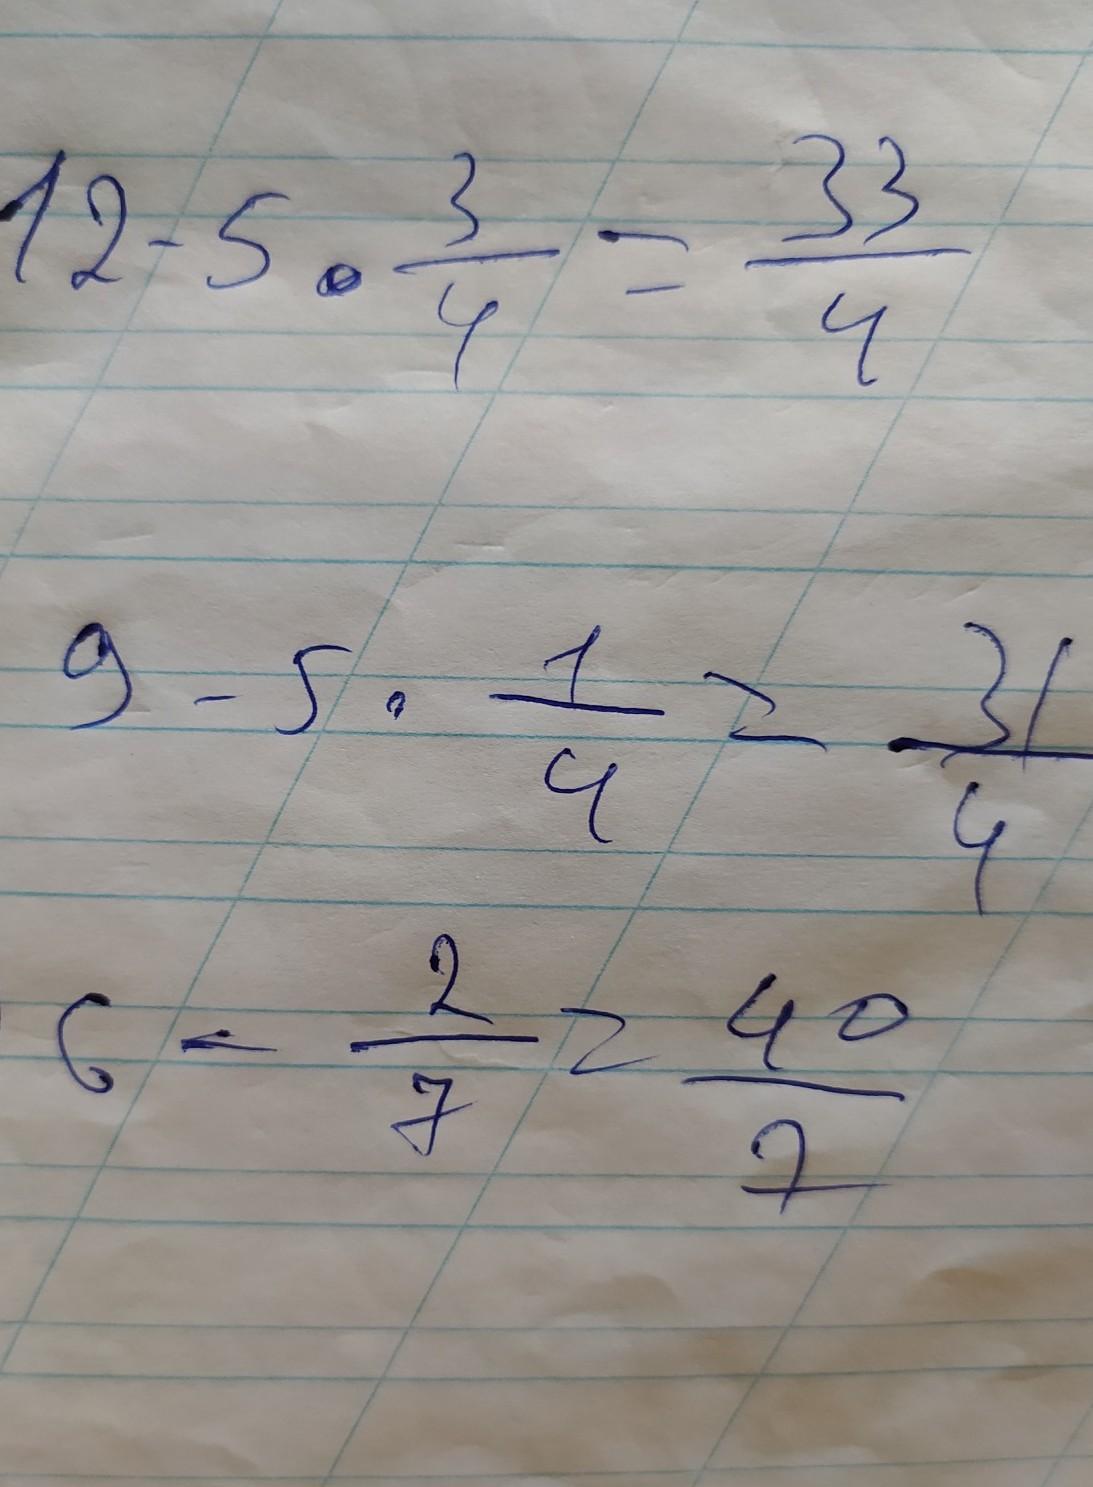 12 - 5 · 3/4 = 33/4
9 - 5 · 1/4 = 31/4
6 - 2/7 = 40/7